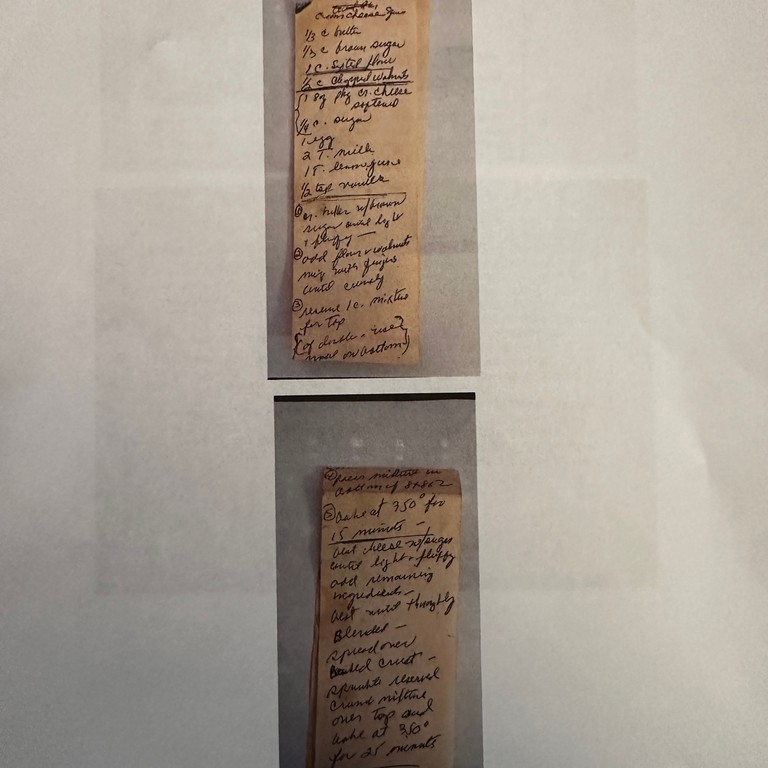 Cream cheese
1/3 c butter
1/3 c brown sugar
1 C. Sifted flour
1/2 c chopped walnuts
1 8oz pkg cr. cheese
softened
1/4 c. sugar
1 egg
2 T. milk
1 T. lemon juice
1/2 tsp vanilla
① cr. butter w/brown
sugar until light
+ fluffy —
② add flour + walnuts
mix with fingers
until crumbly
③ reserve 1 c. mixture
for top
(if double - use
on bottom)
④ press mixture in
bottom of 8x8x2
⑤ bake at 350° for
15 minutes —
beat cheese w/sugar
until light + fluffy
add remaining
ingredients —
beat until thoroughly
Blended —
spread over
baked crust —
sprinkle reserved
crumb mixture
over top and
bake at 350°
for 25 minutes